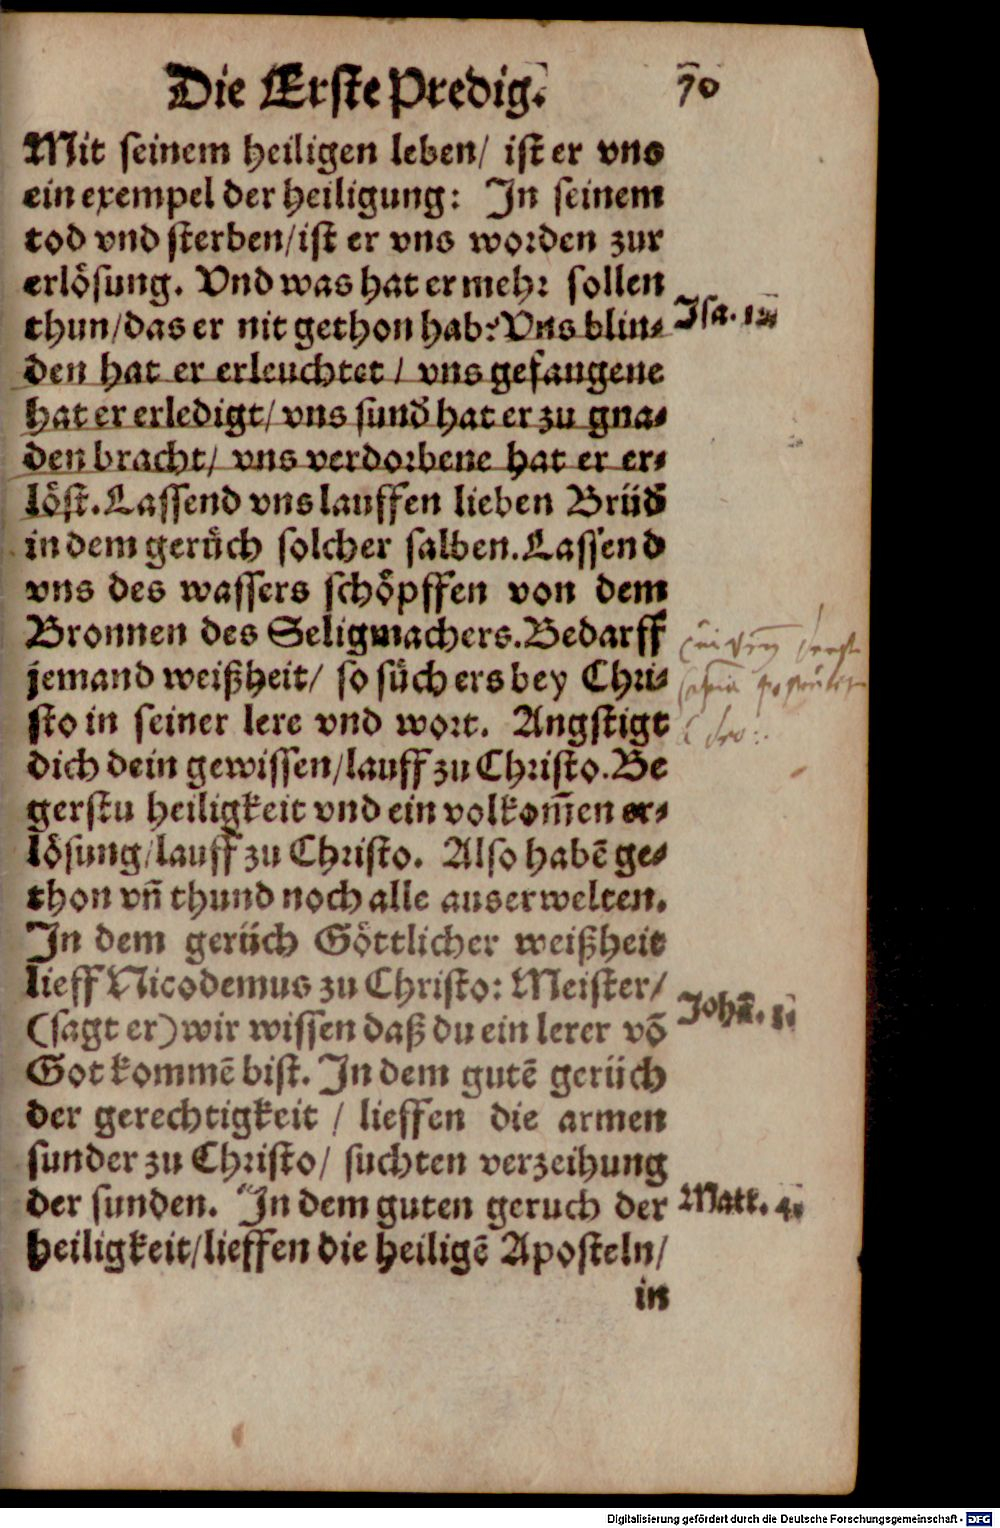 Die Erste Predig. 70
Mit seinem heiligen leben/ ist er vns
ein exempel der heiligung: In seinem
tod vnd sterben/ist er vns worden zur
erlösung. Vnd was hat er mehr sollen
thun/das er nit gethon hab? Vns blin-
Isa. 12.
den hat er erleuchtet / vns gefangene
hat er erledigt/ vns sund̃ hat er zu gna-
den bracht/ vns verdorbene hat er er-
löst. Lassend vns lauffen lieben Brüd̃
in dem gerůch solcher salben. Lassend
vns des wassers schöpffen von dem
Bronnen des Seligmachers. Bedarff
jemand weißheit/ so sůch ers bey Chri-
sto in seiner lere vnd wort. Angstigt
dich dein gewissen/lauff zu Christo. Be
gerstu heiligkeit vnd ein volkom̄en er-
lösung/lauff zu Christo. Also habē ge-
thon vñ thund noch alle auserwelten.
In dem gerüch Göttlicher weißheit
lieff Nicodemus zu Christo: Meister/
(sagt er) wir wissen daß du ein lerer vō
Johā. 3.
Got kommē bist. In dem gutē gerüch
der gerechtigkeit / lieffen die armen
sunder zu Christo/ suchten verzeihung
der sunden. In dem guten geruch der
Matt. 4.
heiligkeit/lieffen die heiligē Aposteln/
in
Digitalisierung gefördert durch die Deutsche Forschungsgemeinschaft - DFG